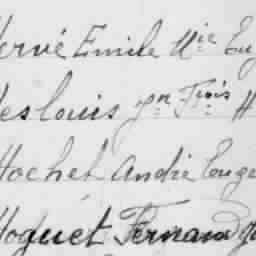 Hervé Emile Mie Eug
Deslouis Jn Frois H
Hochet André Euge
Hoquet Fernand